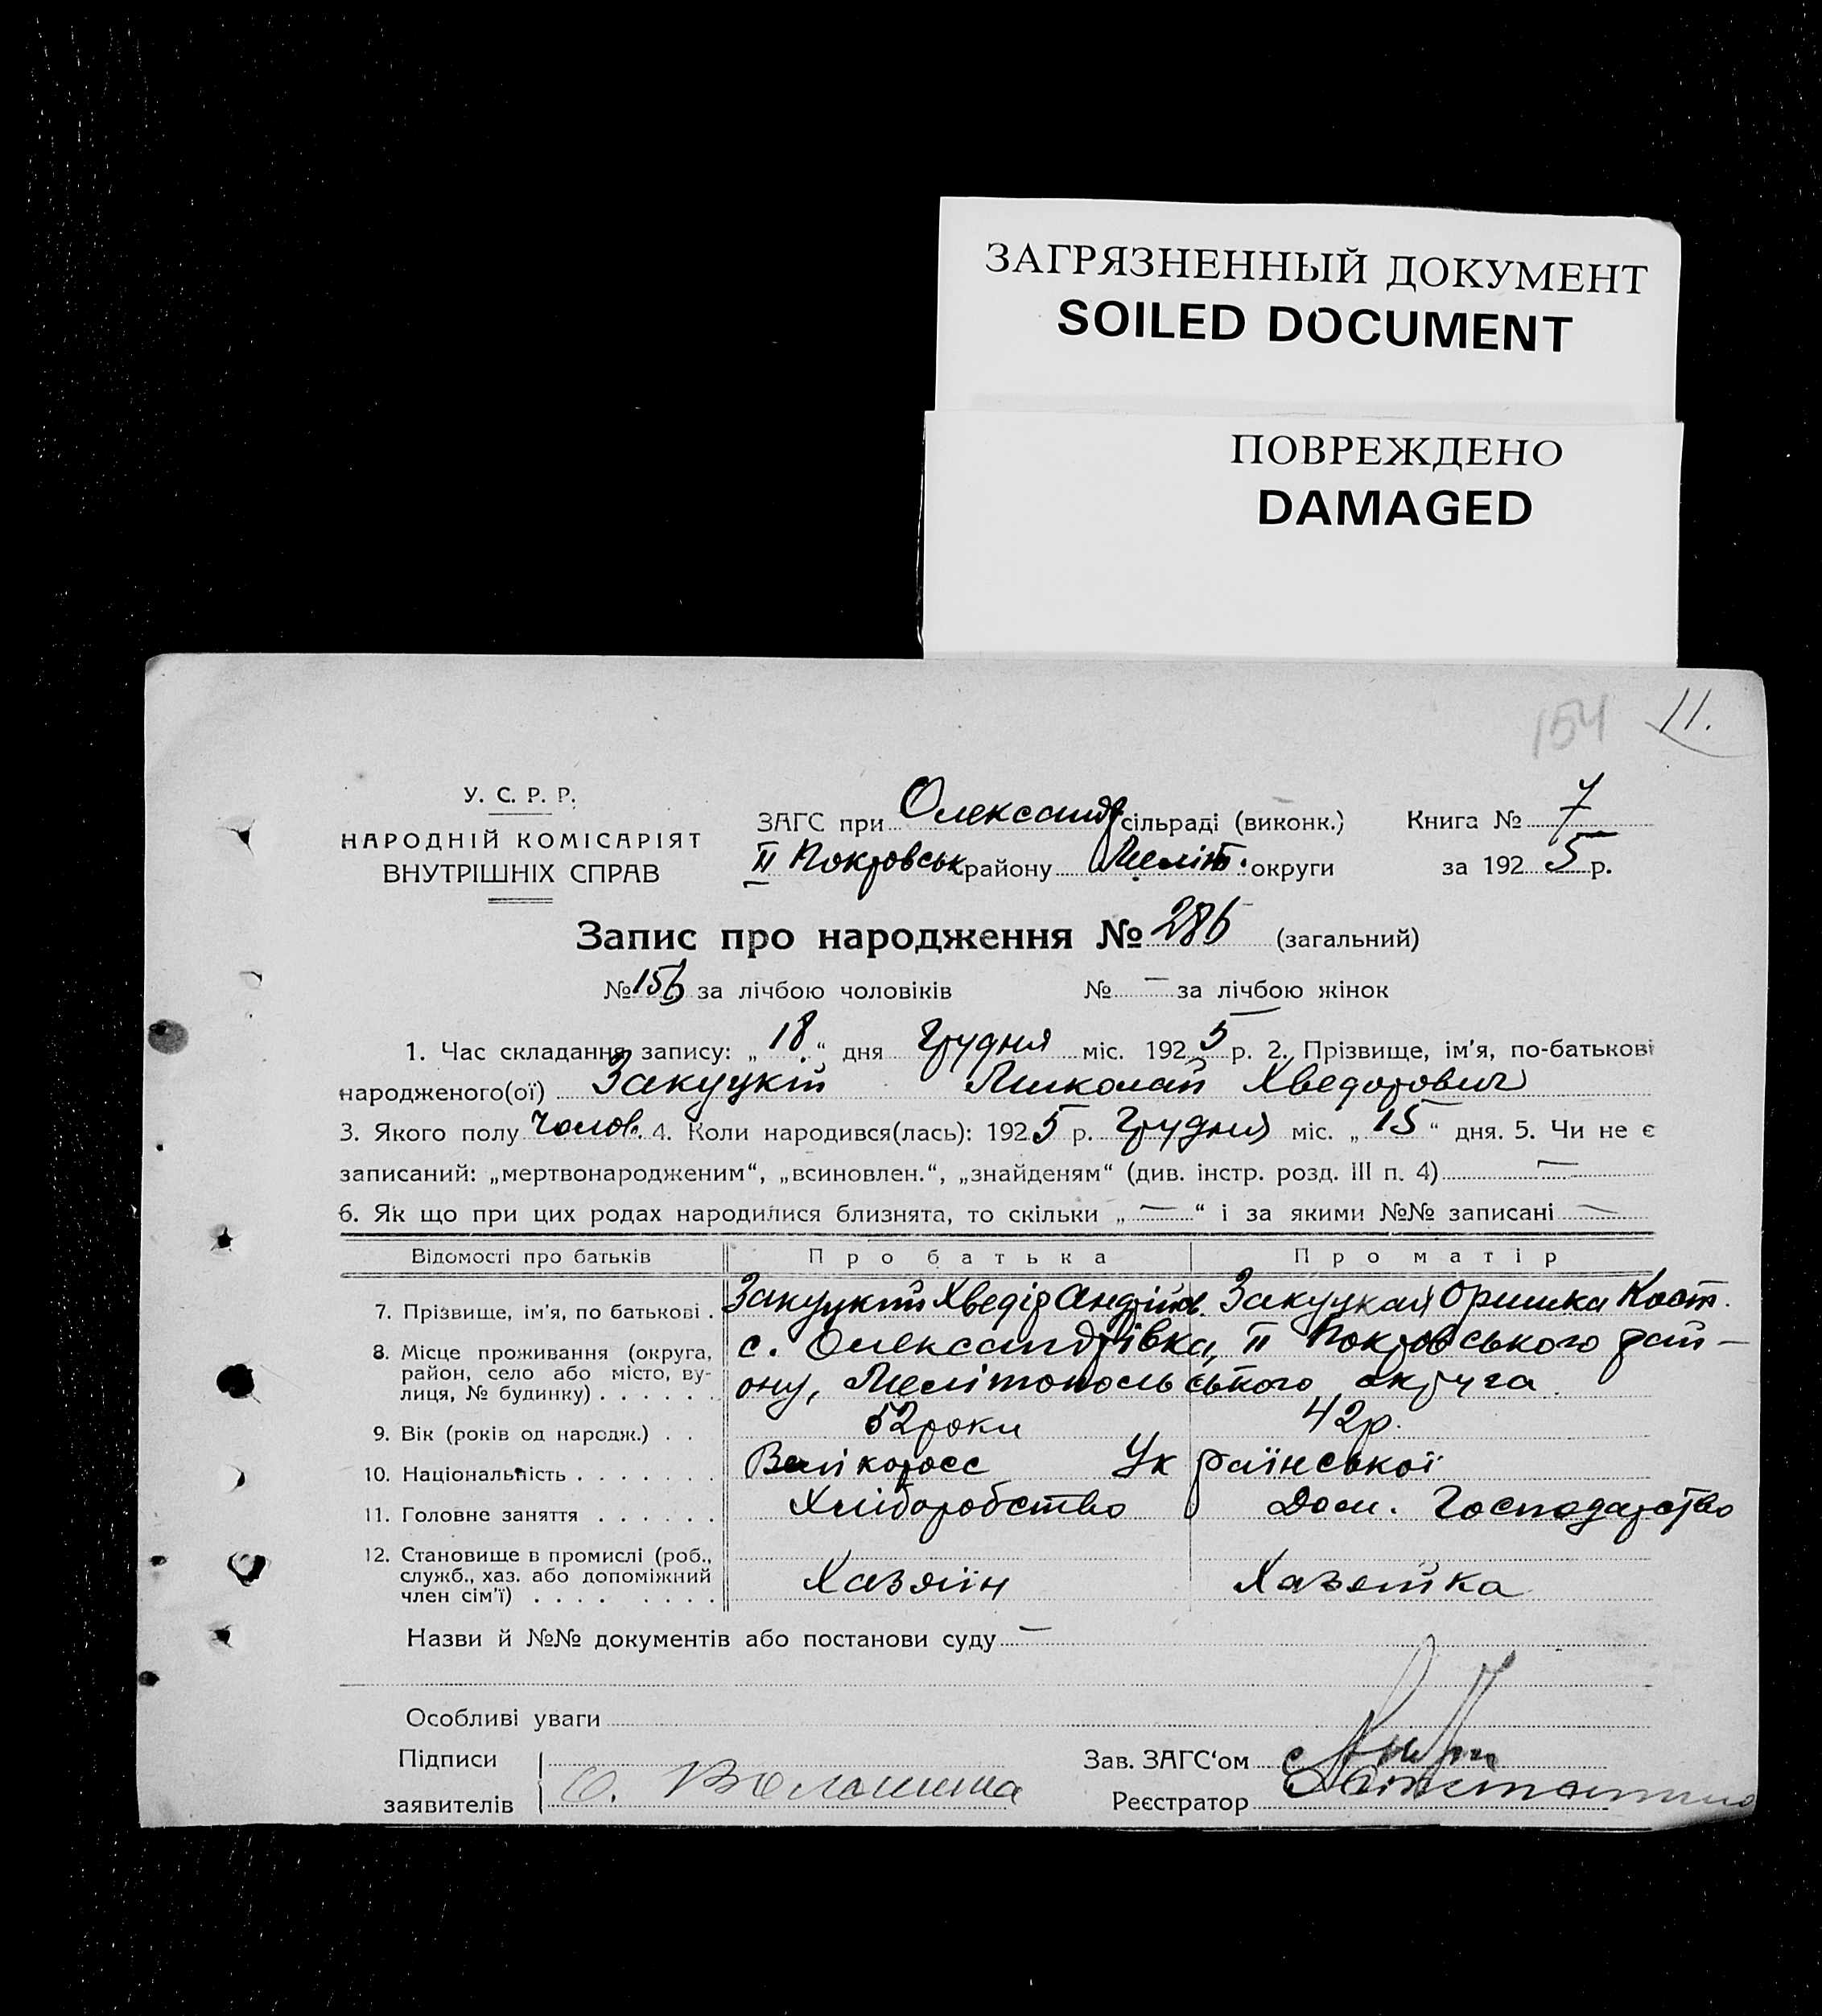 ЗАГРЯЗНЕННЫЙ ДОКУМЕНТ
SOILED DOCUMENT
ПОВРЕЖДЕНО
DAMAGED
154 11.
У. С. Р. Р.
НАРОДНІЙ КОМІСАРІЯТ
ВНУТРІШНІХ СПРАВ
ЗАГС при Олександр сільраді (виконк.) Книга № 7
II Покровськ району Меліт. округи за 1925 р.
Запис про народження № 286 (загальний)
№ 156 за лічбою чоловіків № — за лічбою жінок
1. Час складання запису: „18“ дня Грудня міс. 1925 р. 2. Прізвище, ім'я, по-батькові
народженого(ої) Закуцкій Миколай Хведорович
3. Якого полу Чолов. 4. Коли народився(лась): 1925 р. Грудня міс. „15“ дня. 5. Чи не є
записаний: „мертвонародженим“, „всиновлен.“, „знайденям“ (див. інстр. розд. III п. 4) —
6. Як що при цих родах народилися близнята, то скільки „—“ і за якими №№ записані —
Відомості про батьків Про батька Про матір
7. Прізвище, ім'я, по батькові . Закуцкий Хведір Андрійов. Закуцкая Оришка Кост.
8. Місце проживання (округа, район, село або місто, вулиця, № будинку) . . . . . . с. Олександрівка, II Покровського рай-
ону, Мелітопольського округа.
9. Вік (років од народж.) . . 52 роки 42 р.
10. Національність . . . . . . . Велікоросс Української
11. Головне заняття . . . . . . Хліборобство Дом. Господарство
12. Становище в промислі (роб., служб., хаз. або допоміжний член сім'ї) . . . . . . . . Хазяїн Хазяйка
Назви й №№ документів або постанови суду —
Особливі уваги
Підписи
заявителів О. Волошина
Зав. ЗАГС'ом
Реєстратор